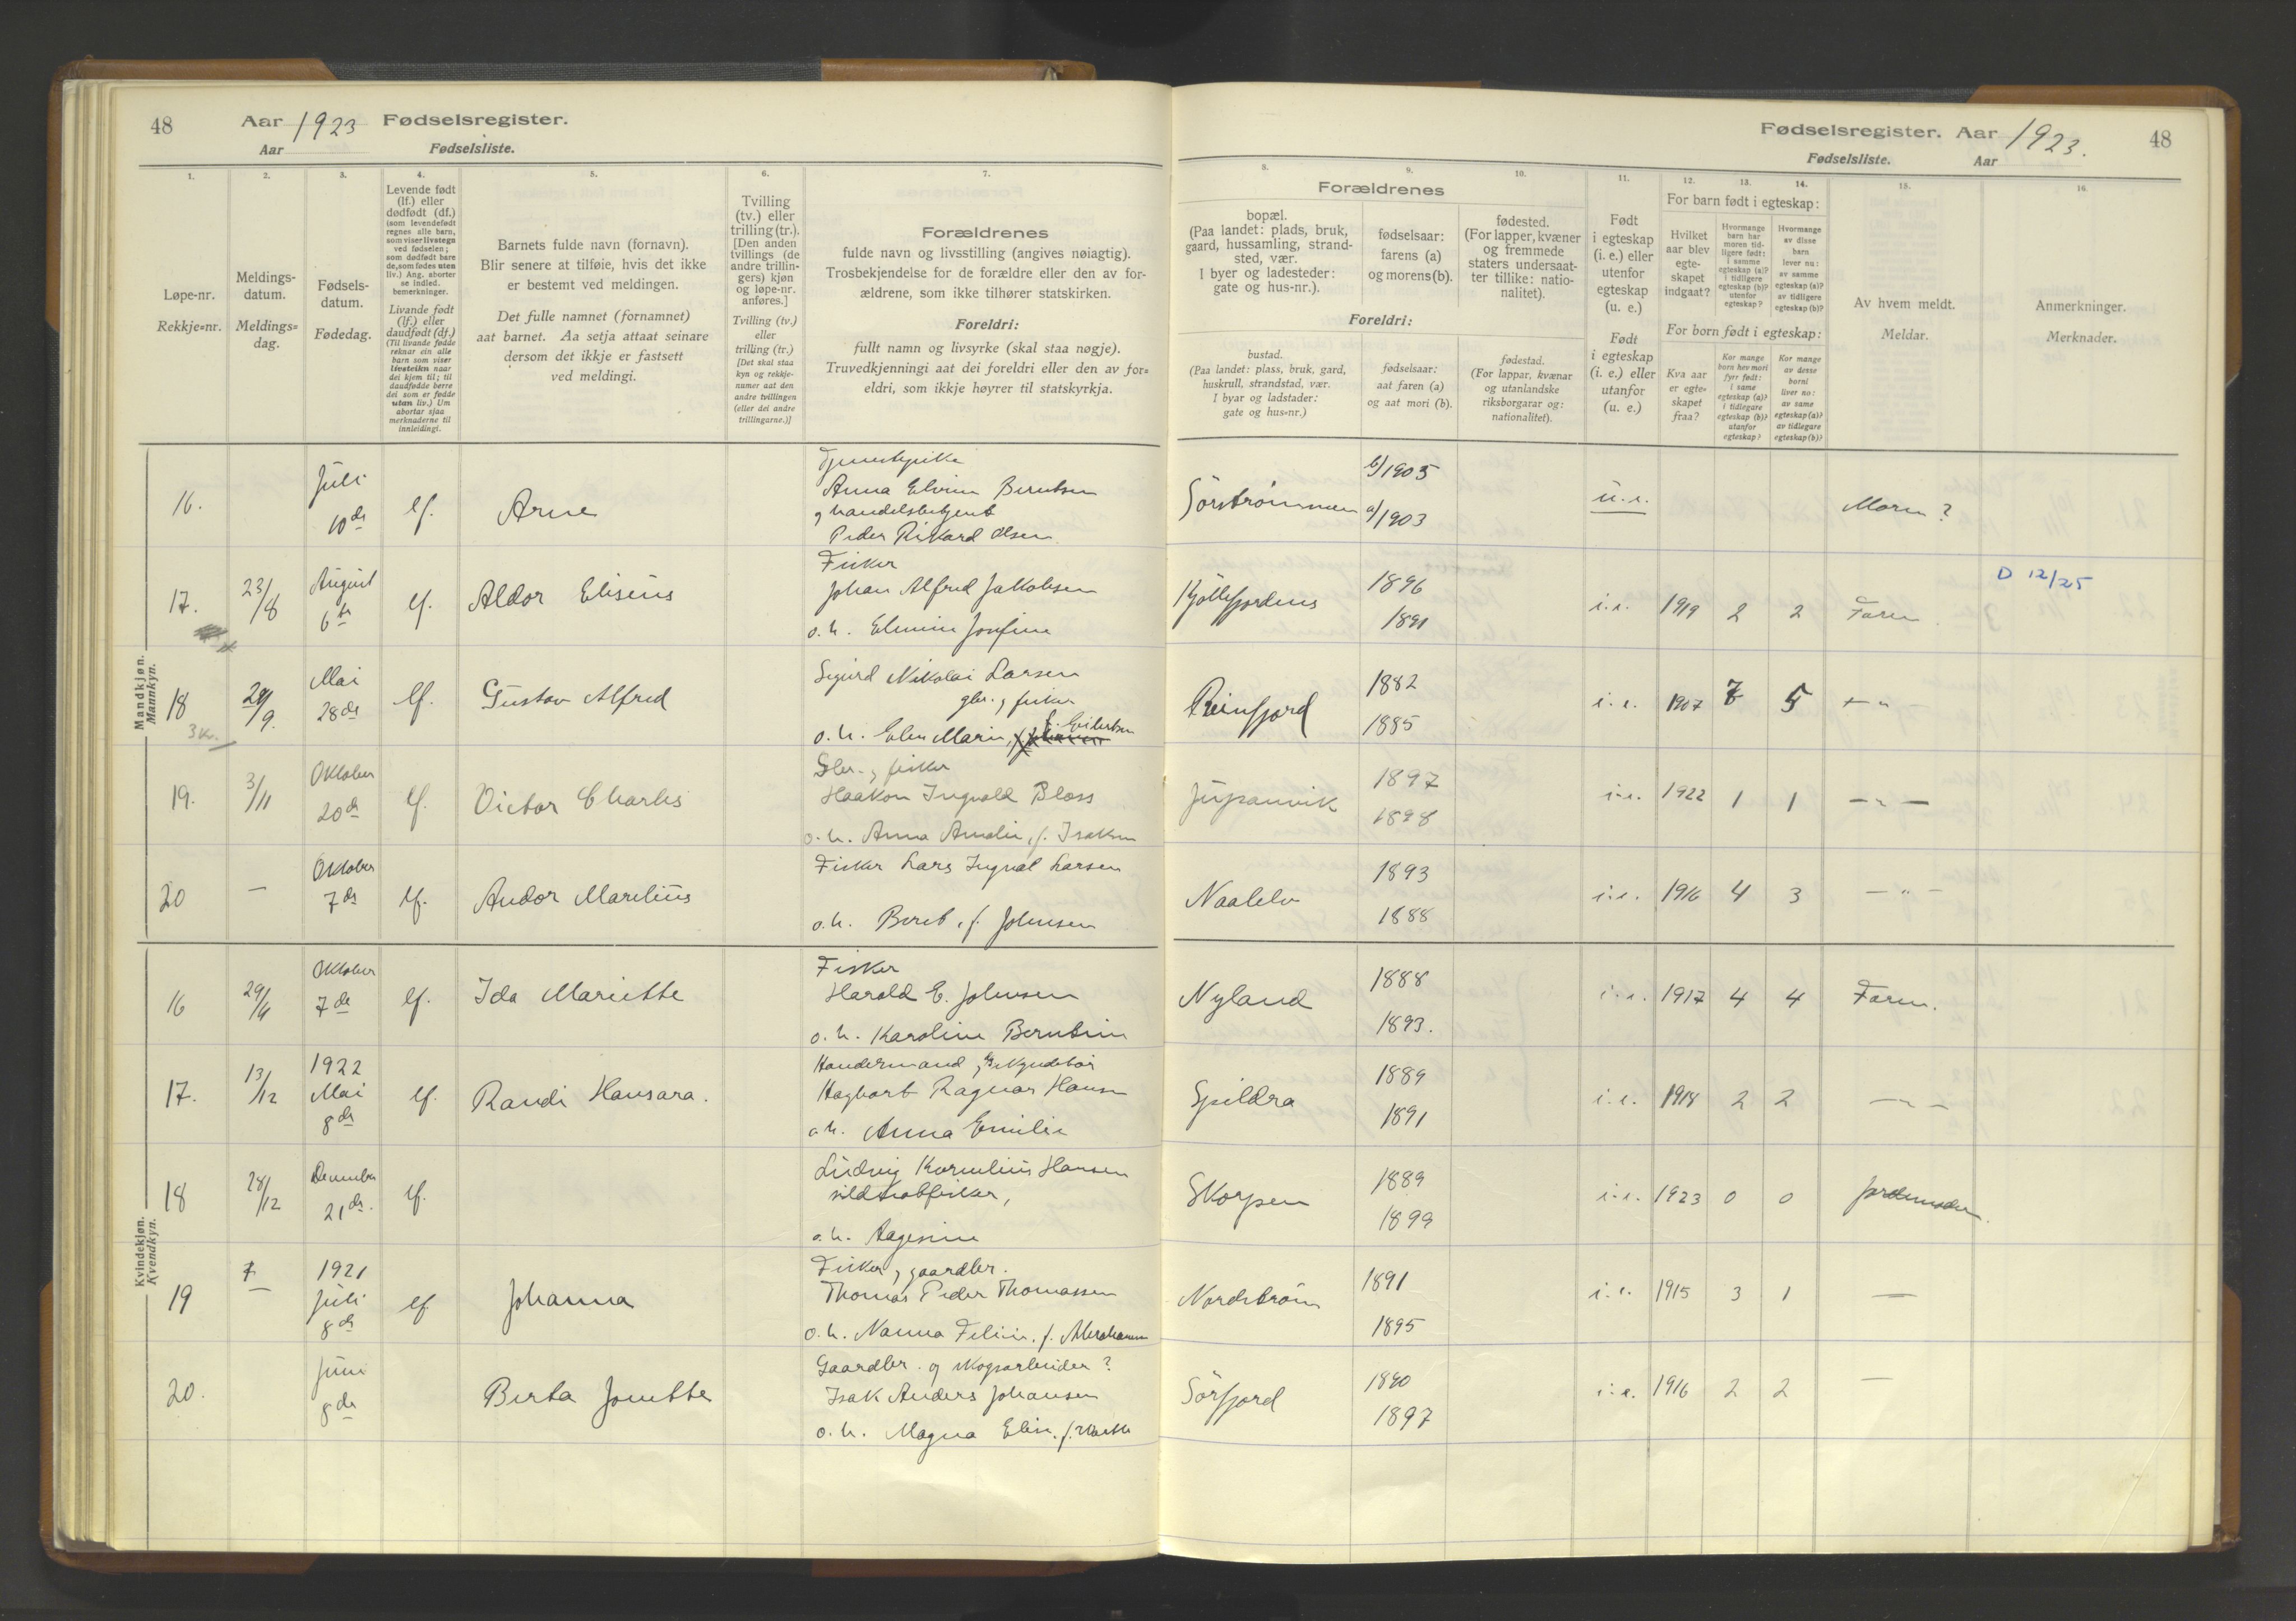 48 Aar 1923 Fødselsregister.
Aar Fødselsliste.
1. 2. 3. 4. 5. 6. 7.
Løpe-nr.
Rekkje=nr.
Meldings-
datum.
Meldings=
dag.
Fødsels-
datum.
Fødedag.
Levende født
(lf.) eller
dødfødt (df.)
(som levendefødt
regnes alle barn,
som viser livstegn
ved fødselen;
som dødfødt bare
de, som fødes uten
liv.) Ang. aborter
se indled.
bemerkninger.
Livande født
(lf.) eller
daudfødt (df.)
(Til livande fødde
reknar ein alle
barn som viser
livsteikn naar
dei kjem til; til
daudfødde berre
dei som er fødde
utan liv.) Um
abortar sjaa
merknaderne til
innleidingi.
Barnets fulde navn (fornavn).
Blir senere at tilføie, hvis det ikke
er bestemt ved meldingen.
Det fulle namnet (fornamnet)
aat barnet. Aa setja attaat seinare
dersom det ikkje er fastsett
ved meldingi.
Tvilling
(tv.) eller
trilling (tr.).
[Den anden
tvillings (de
andre trillin-
gers) kjøn
og løpe-nr.
anføres.]
Tvilling (tv.)
eller
trilling (tr.)
[Det skal staa
kyn og rekkje-
numer aat den
andre tvillingen
(eller dei andre
trillingarne.)]
Forældrenes
fulde navn og livsstilling (angives nøiagtig).
Trosbekjendelse for de forældre eller den av for-
ældrene, som ikke tilhører statskirken.
Foreldri:
fullt namn og livsyrke (skal staa nøgje).
Truvedkjenningi aat dei foreldri eller den av for=
eldri, som ikkje høyrer til statskyrkja.
Mandkjøn.
Mannkyn.
16. Juli 10de lf. Arne
Tjenestepike
Anna Elvine Berntsen
og handelsbetjent
Peder Rikard Olsen
17. 23/8 August 6te lf. Aldor Eliseus
Fisker
Johan Alfred Jakobsen
o. h. Elenine Josefine
18 29/9. Mai 28de lf. Gustav Alfred
3 Kr.
Sigurd Nikolai Larsen
gbr. og fisker
o. h. Elen Marie,
19. 3/11 Oktober 20de lf. Victor Charles
Gbr. og fisker
Haakon Ingvald Bloss
o. h. Anna Amalie, f. Isaksen
20 — Oktober 7de lf. Andor Marelius
Fisker Lars Ingval Larsen
o. h. Beret, f. Johnsen
Kvindekjøn.
Kvendkyn.
16 Oktober 7de lf. Ida Mariette
Fisker
Harald E. Johnsen
o. h. Karoline Berntine
17. 13/12 1922 Mai 8de lf. Randi Hansara.
Handelsmand,
Hagbart Ragnar Hansen
o. h. Anna Emilie
18 28/12 December 21de. lf.
Ludvig Kornelius Hansen
o. h. Aagesine
19 — 1921 Juli 8de lf. Johanna
Fisker og gaardbr.
Thomas Peder Thomassen
o. h. Nanna Feline, f. Abrahamsen
20. Juni 8de Berta Jonette
Gaardbr. og skogsarbeider?
Isak Anders Johansen
o. h. Magna Elise,
Fødselsregister. Aar 1923. 48
Fødselsliste. Aar
8. 9. 10. 11. 12. 13. 14. 15. 16.
Forældrenes
bopæl.
(Paa landet: plads, bruk,
gaard, hussamling, strand-
sted, vær.
I byer og ladesteder:
gate og hus-nr.).
fødselsaar:
farens (a)
og morens (b).
fødested.
(For lapper, kvæner
og fremmede
staters undersaat-
ter tillike: natio-
nalitet).
Foreldri:
bustad.
(Paa landet: plass, bruk, gard,
huskrull, strandstad, vær.
I byar og ladstader:
gate og hus=nr.)
fødselsaar:
aat faren (a)
og aat mori (b).
fødestad.
(For lappar, kvænar
og utanlandske
riksborgarar og:
nationalitet).
Født
i egteskap
(i. e.) eller
utenfor
egteskap
(u. e.)
Født
i egteskap
(i. e.) eller
utanfor
(u. e.)
For barn født i egteskap:
Hvilket
aar blev
egte-
skapet
indgaat?
Hvormange
barn har
moren tid-
ligere født:
i samme
egteskap (a)?
i tidligere
egteskap (b)?
utenfor
egteskap?
Hvormange
av disse
barn
lever nu:
av samme
egteskap (a)?
av tidligere
egteskap (b)?
For born født i egteskap:
Kva aar
er egte-
skapet
fraa?
Kor mange
born hev mori
fyrr født:
i same
egteskap (a)?
i tidlegare
egteskap (b)?
utanfor
egteskap?
Kor mange
av desse
borni
liver no:
av same
egteskap (a)?
av tidlegare
egteskap (b)?
Av hvem meldt.
Meldar.
Anmerkninger.
Merknader.
Sørstrømmen b/1905 a/1903 u. e. Moren?
Kjøllefjordens 1896 1891 i. e. 1919 2 2 Faren D 12/25
Reinfjord 1882 1885 i. e. 1907 7 5 — " —
1897 1898 i. e. 1922 1 1 — " —
Naalelv 1893 1888 i. e. 1916 4 3 — " —
Nyland 1888 1893. i. e. 1917 4 4 Faren.
Spildra 1889 1891 i. e. 1918 2 2 — " —
Skorpen 1889 1899 i. e. 1923 0 0 jordmoder.
Nordstrøm 1891 1895 i. e. 1915 3 1 —
Sørfjord 1890 1897 i. e. 1916 2 2 —